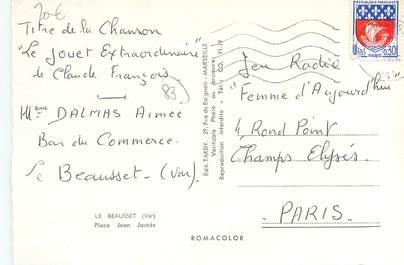 20€
Titre de la Chanson
"Le Jouet Extraordinaire"
de Claude François.
83
Mme DALMAS Aimée
Bar du Commerce.
Le Beausset - (Var).
LE BEAUSSET (Var)
Place Jean Jaurès
Edit. TARDY, 29, Rue du Baignoir - MARSEILLE
Véritable Photo au bromure
Reproduction interdite - Tél.
ROMACOLOR
REPUBLIQUE FRANÇAISE
PARIS
0,30
Jeu Radio
"Femme d'Aujourd'hui
4, Rond Point
Champs Elysés.
PARIS.